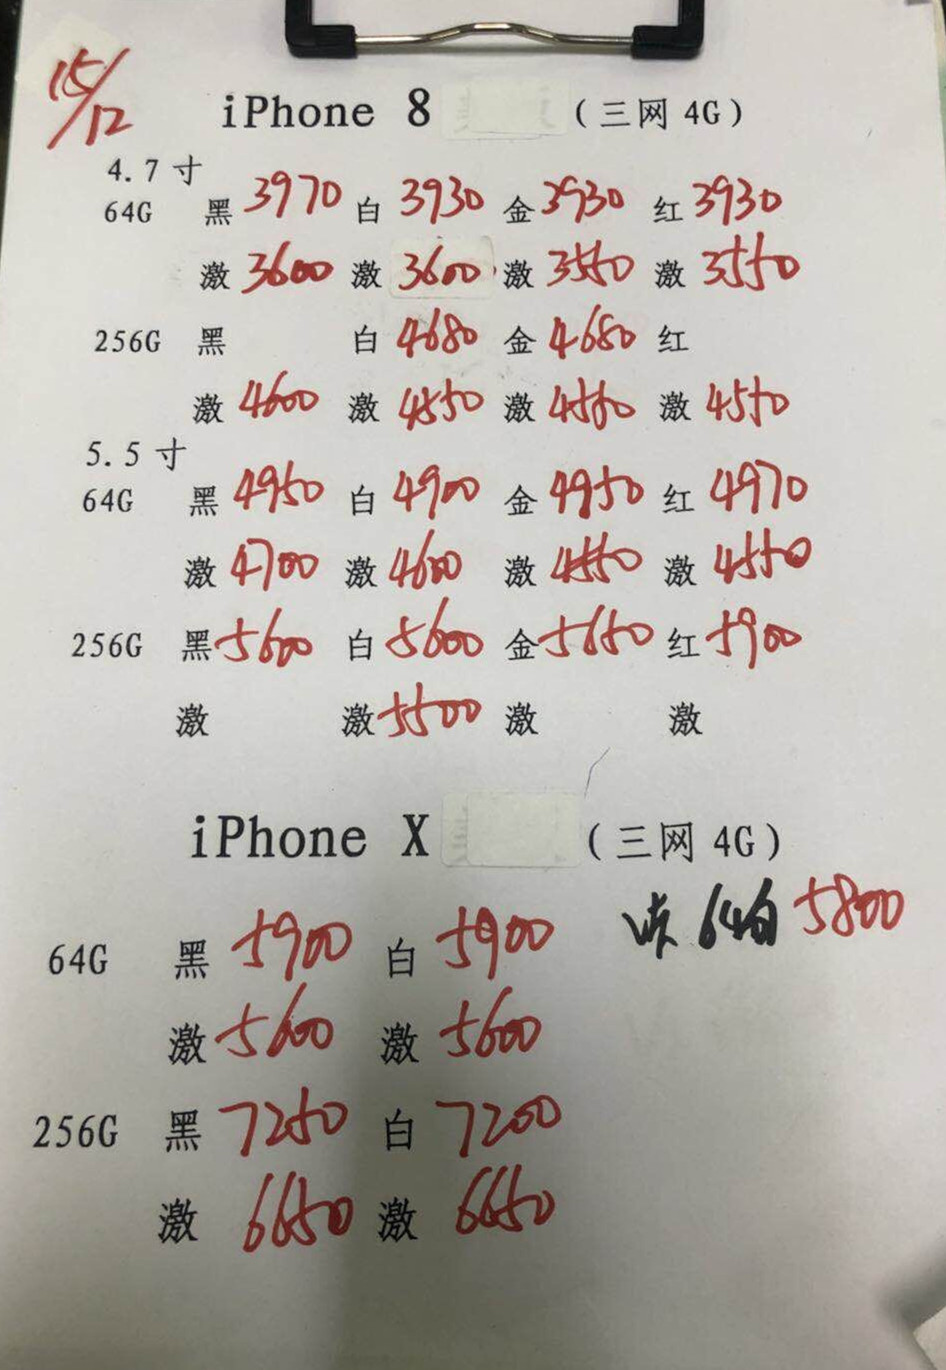 15/12
iPhone 8 (三网 4G)
4.7 寸
64G 黑 3970 白 3930 金 3930 红 3930
激 3600 激 3600 激 3550 激 3550
256G 黑 白 4680 金 4680 红
激 4600 激 4550 激 4550 激 4550
5.5 寸
64G 黑 4950 白 4900 金 4950 红 4970
激 4700 激 4600 激 4550 激 4550
256G 黑 5600 白 5600 金 5650 红 5900
激 激 5500 激 激
iPhone X (三网 4G)
64G 黑 5900 白 5900 64白 5800
激 5600 激 5600
256G 黑 7250 白 7200
激 6650 激 6650